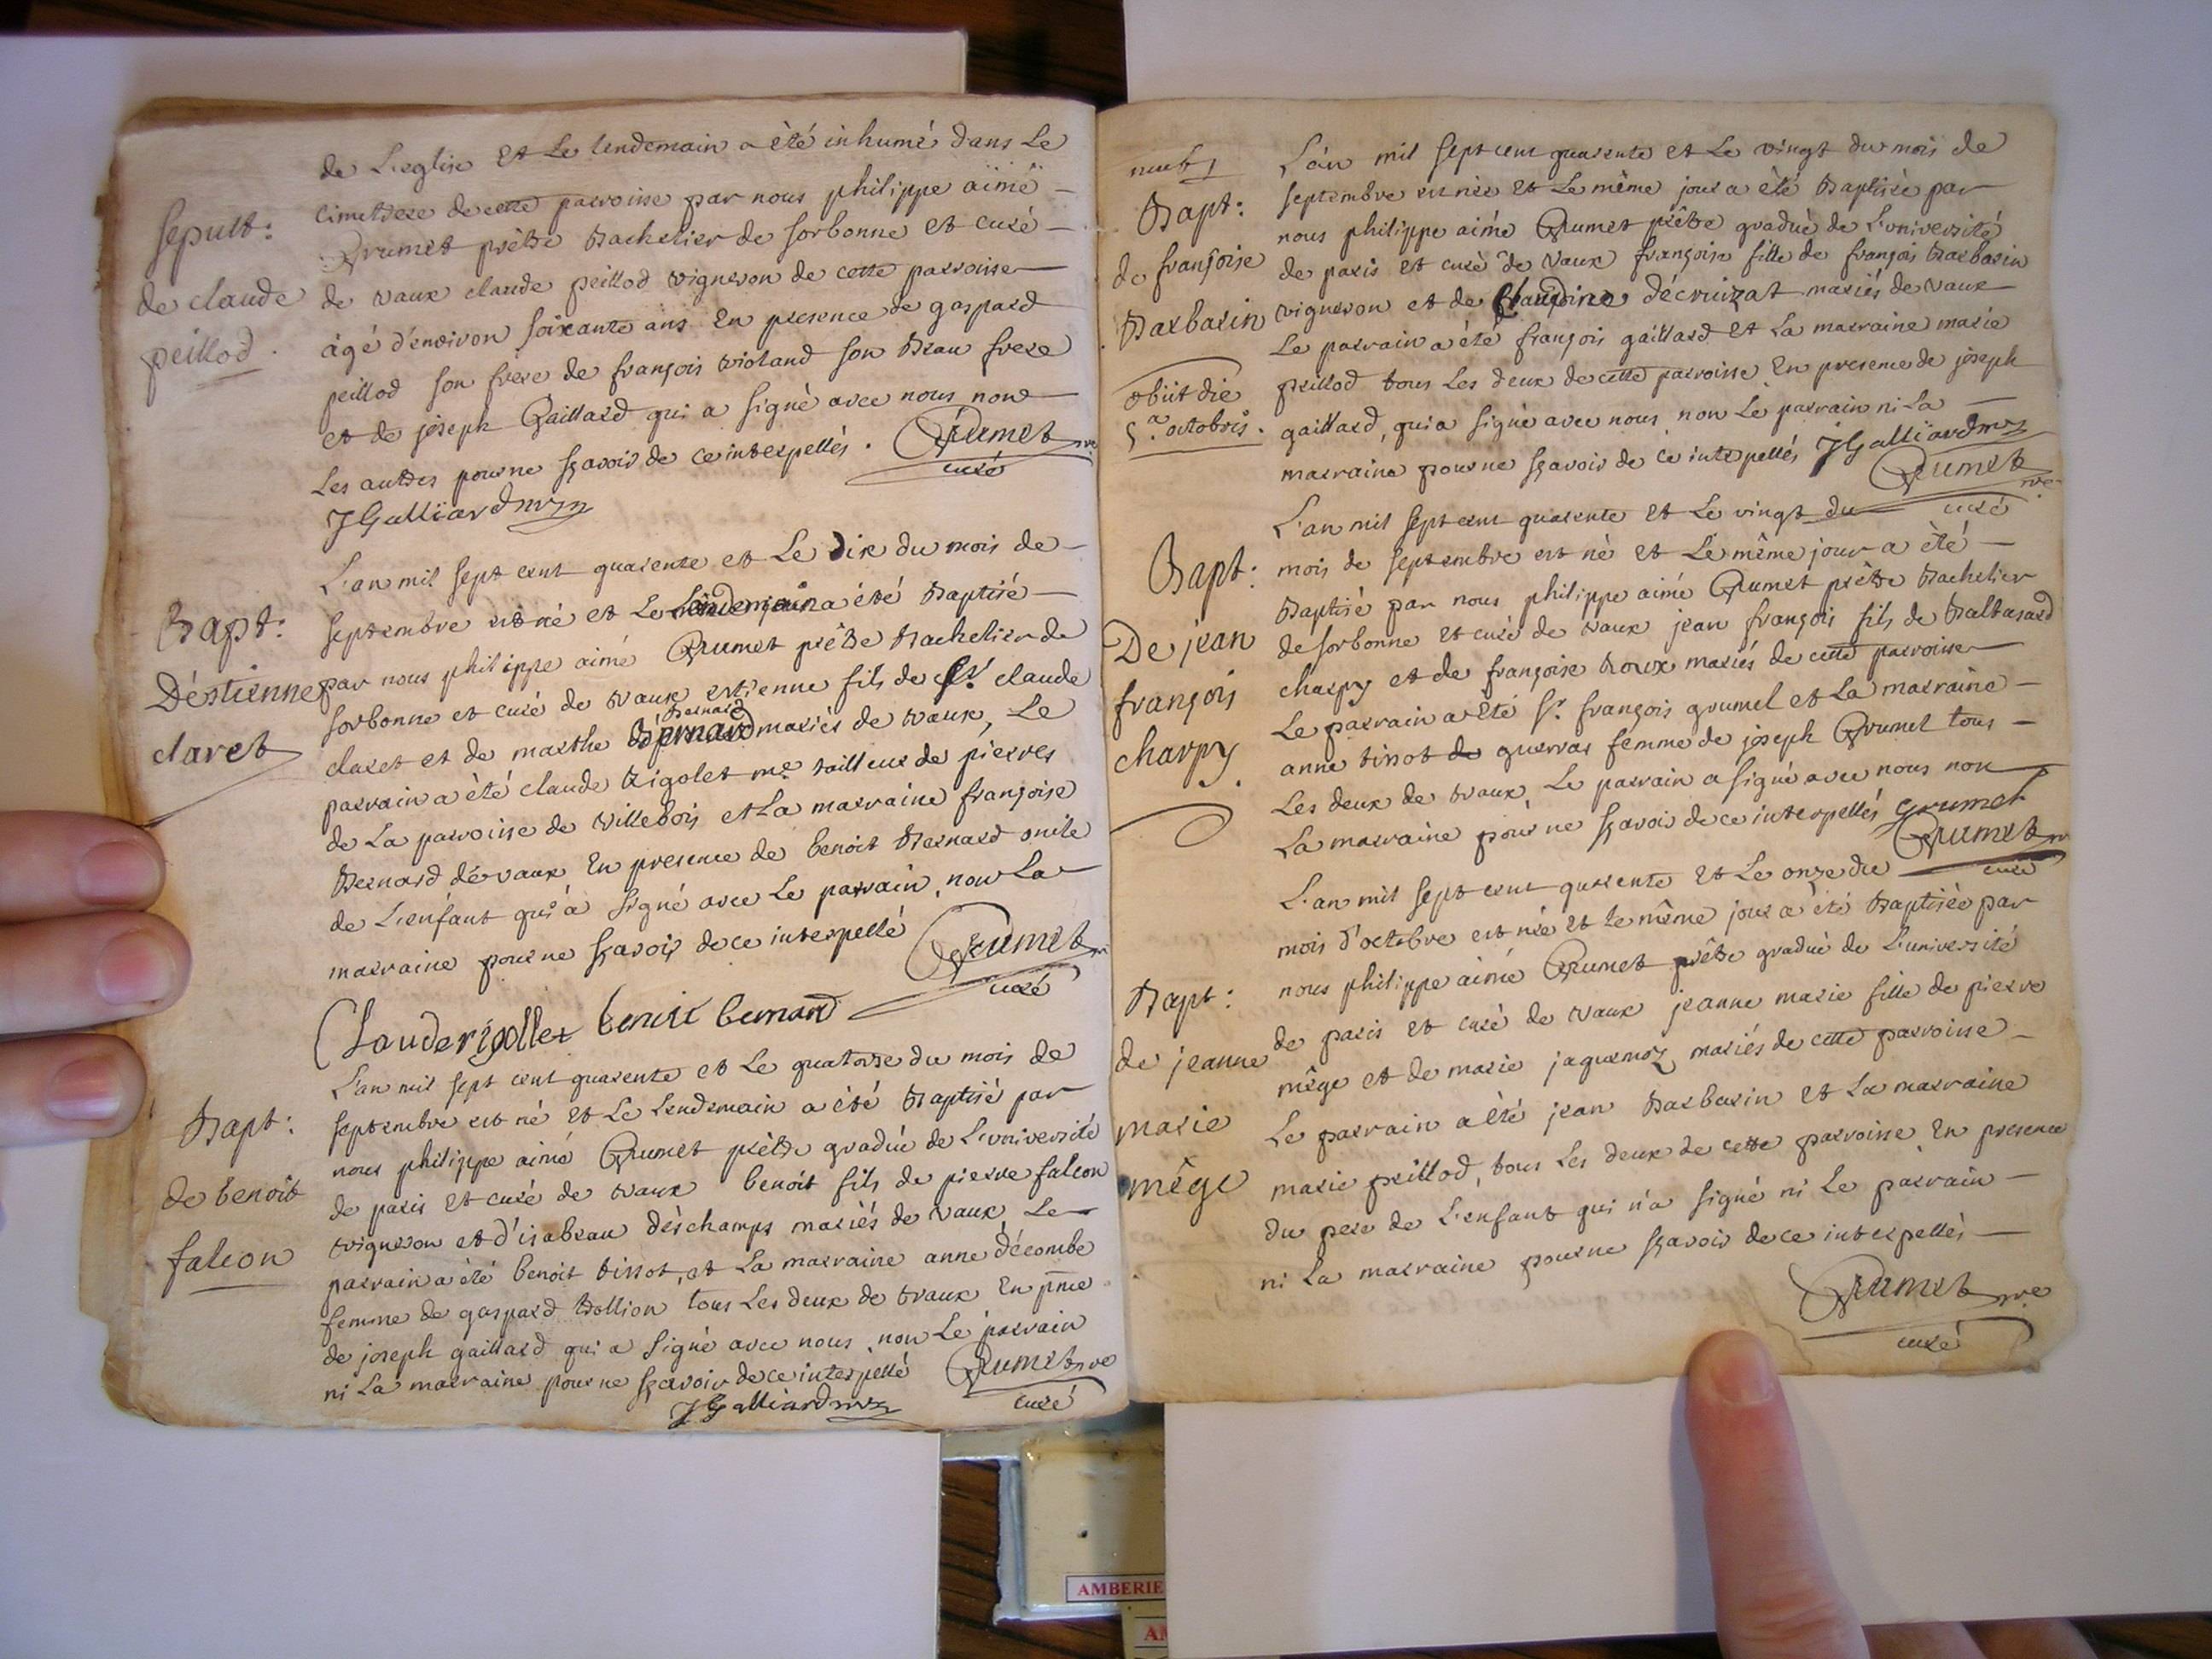 de L'eglise et Le lendemain a été inhumé dans Le
cimetiere de cette parroisse par nous philippe aimé
Grumet prêtre Bachelier de sorbonne et curé
de vaux claude peillod vigneron de cette parroisse
âgé d'environ soixante ans En presence de gaspard
peillod son frere de françois violand son Beau frere
et de joseph Gaillard qui a signé avec nous non
Les autres pour ne sçavoir de ce interpellés .
Grumet pre
curé
JGalliard
sepult:
de claude
peillod .
L'an mil sept cent quarente et Le dix du mois de
septembre est né et Le Lendemain a été Baptisé
par nous philippe aimé Grumet prêtre Bachelier de
sorbonne et curé de vaux estienne fils de Sr claude
Bernard
claret et de marthe Bernard mariés de vaux, Le
parrain a été claude Rigolet me tailleur de pierres
de La parroisse de villebois et La marraine françoise
Bernard de vaux En presence de benoit Bernard oncle
de L'enfant qui a signé avec Le parrain, non La
marraine pour ne sçavoir de ce interpellé
Grumet
curé
Claude rigollet benoit bernard
Bapt:
D'éstienne
claret
L'an mil sept cent quarente et Le quatorze du mois de
septembre est né et Le Lendemain a été Baptisé par
nous philippe aimé Grumet prêtre gradué de L'université
de paris et curé de vaux benoit fils de pierre falcon
vigneron et d'isabeau deschamps mariés de vaux Le
parrain a été benoit tissot, et La marraine anne décombe
femme de gaspard Bollion tous Les deux de vaux En pnce
de joseph gaillard qui a signé avec nous, non Le parrain
ni La marraine pour ne sçavoir de ce interpellé
Grumet pre
curé
JGalliard
Bapt:
de benoit
falcon
L'an mil sept cent quarente et Le vingt du mois de
septembre est née et Le même jour a été Baptisée par
nous philippe aimé Grumet prêtre gradué de L'université
de paris et curé de vaux françoise fille de françois Barbarin
vigneron et de Claudine décruizat mariés de vaux
Le parrain a été françois gaillard et La marraine marie
peillod tous Les deux de cette parroisse En presence de joseph
gaillard, qui a signé avec nous, non Le parrain ni La
marraine pour ne sçavoir de ce interpellés JGalliard
Grumet pre
curé
Bapt:
de françoise
Barbarin
obiit die
5a octobris .
L'an mil sept cent quarente et Le vingt du
mois de septembre est né et Le même jour a été
Baptisé par nous philippe aimé Grumet prêtre Bachelier
de sorbonne et curé de vaux jean françois fils de Baltasard
charpy et de françoise Roux mariés de cette parroisse
Le parrain a été Sr. françois grumel et La marraine
anne tissot de guerras femme de joseph Grumel tous
Les deux de vaux, Le parrain a signé avec nous non
La marraine pour ne sçavoir de ce interpellés grumel
Grumet
curé
Bapt:
De jean
françois
charpy .
L'an mil sept cent quarente et Le onze du
mois d'octobre est née et Le même jour a été Baptisée par
nous philippe aimé Grumet prêtre gradué de L'université
de paris et curé de vaux jeanne marie fille de pierre
mêge et de marie jaquemoz mariés de cette parroisse
Le parrain a été jean Barbarin et La marraine
marie peillod, tous Les deux de cette parroisse, En presence
du pere de L'enfant qui n'a signé ni Le parrain
ni La marraine pour ne sçavoir de ce interpellés
Grumet pre
curé
Bapt:
de jeanne
marie
mêge
AMBERIE